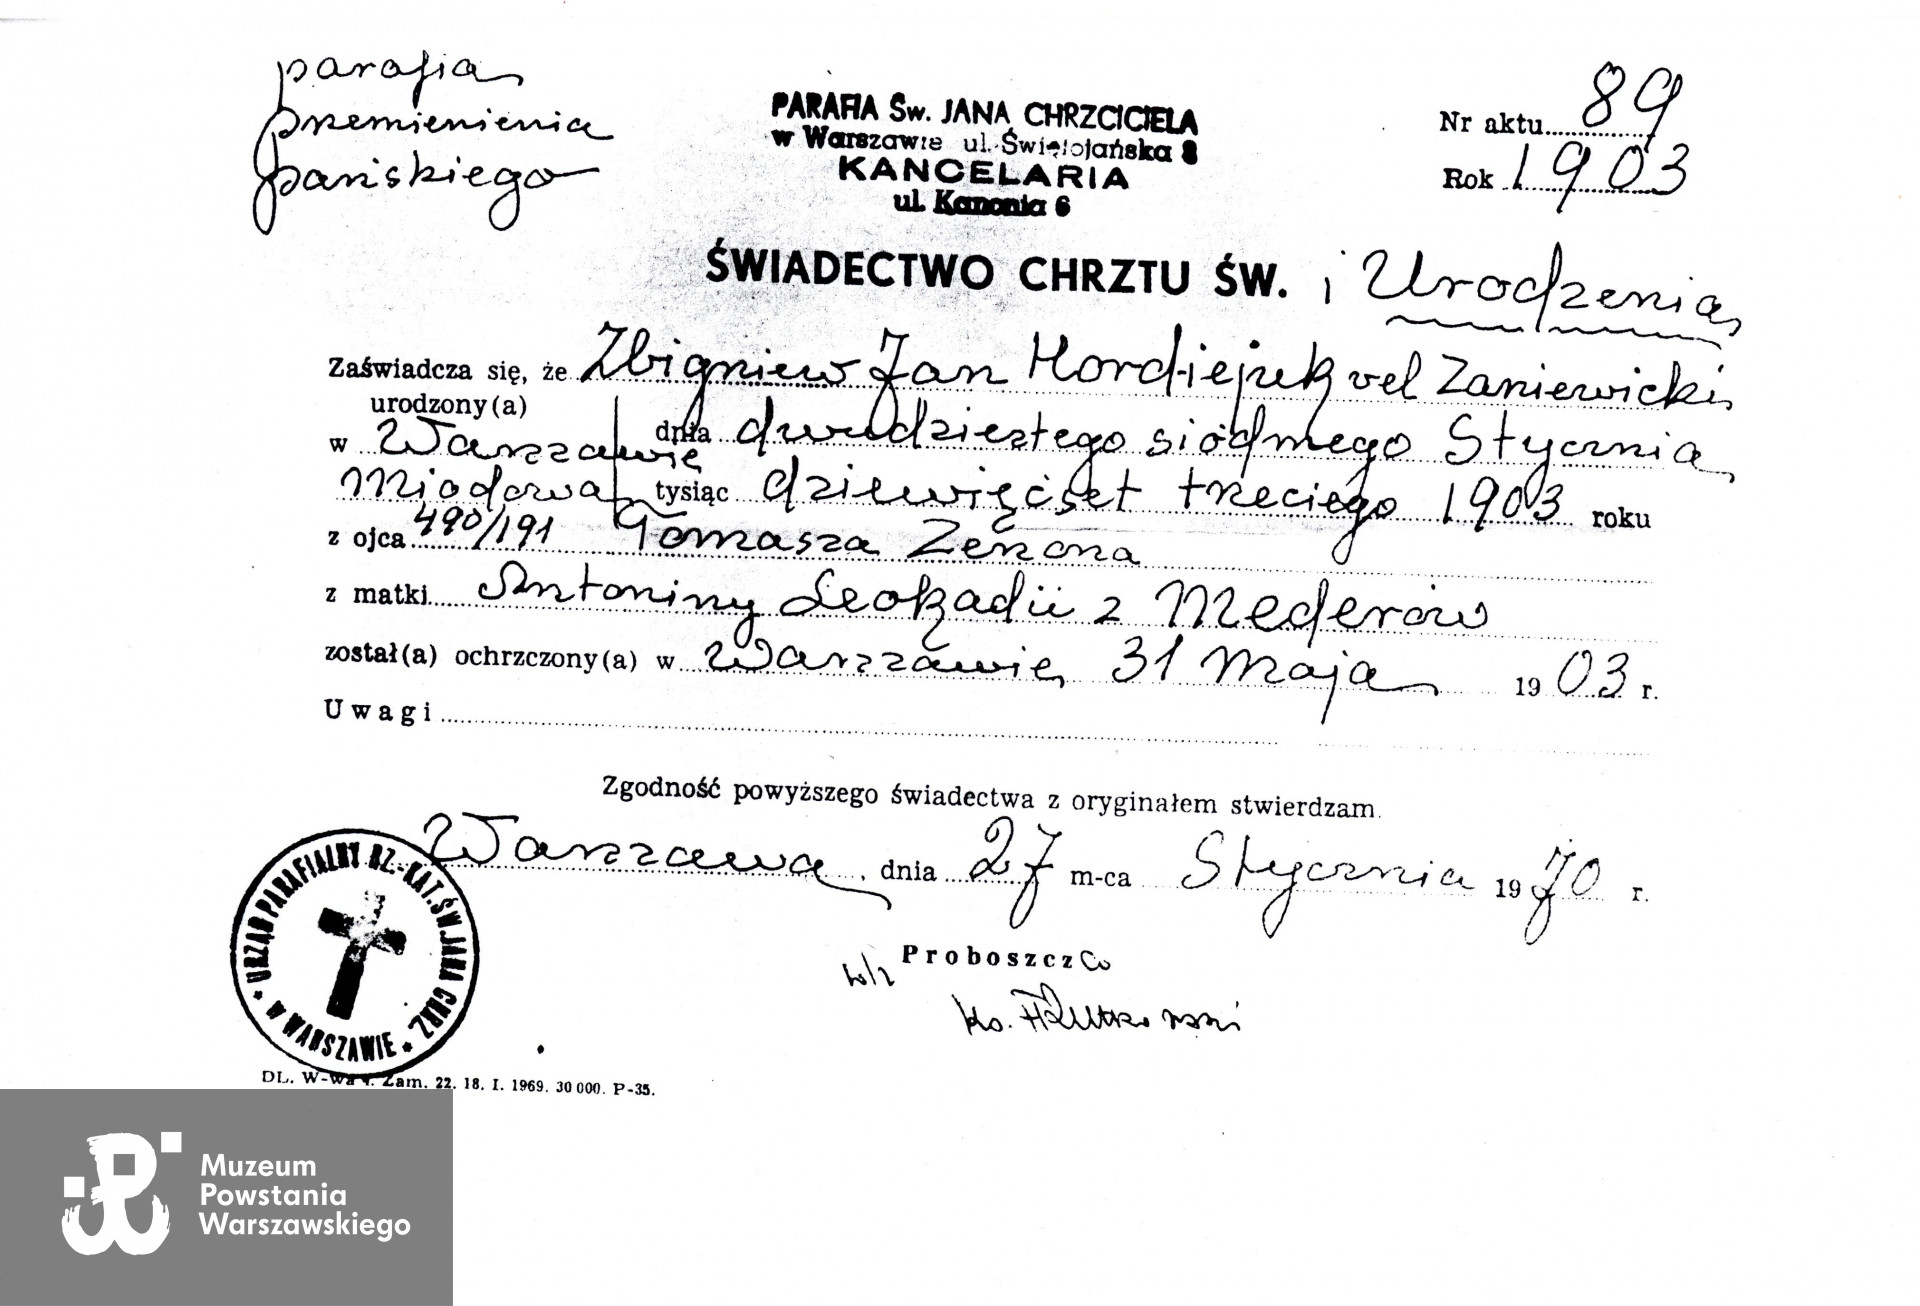 parafia
przemienienia
pańskiego
PARAFIA Św. JANA CHRZCICIELA
w Warszawie ul. Świętojańska 8
KANCELARIA
ul. Kanonia 6
Nr aktu 89
Rok 1903
ŚWIADECTWO CHRZTU ŚW. i Urodzenia
Zaświadcza się, że Zbigniew Jan Hordiejuk vel Zaniewicki
urodzony(a)
w Warszawie dnia dwudziestego siódmego Stycznia
Miodowa tysiąc dziewięćset trzeciego 1903 roku
490/191
z ojca Tomasza Zenona
z matki Antoniny Leokadii z Mederów
został(a) ochrzczony(a) w Warszawie, 31 Maja 1903 r.
Uwagi
Zgodność powyższego świadectwa z oryginałem stwierdzam.
Warszawa, dnia 27 m-ca Stycznia 1970 r.
w/z Proboszcz
ks. Rutkowski
URZĄD PARAFIALNY RZ.-KAT. ŚW. JANA CHRZ. * W WARSZAWIE *
DL. W-wa Zam. 22. 18. I. 1969. 30 000. P-35.
Muzeum
Powstania
Warszawskiego